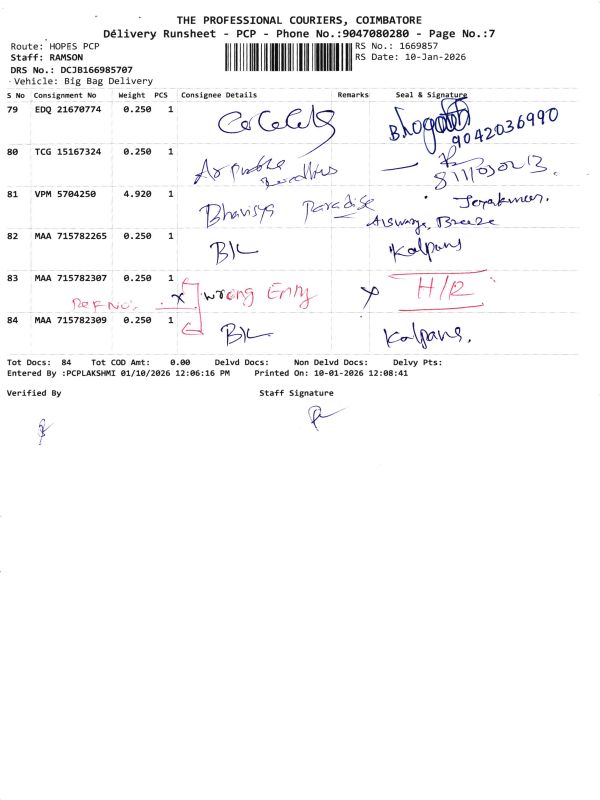 THE PROFESSIONAL COURIERS, COIMBATORE
Delivery Runsheet - PCP - Phone No.:9047080280 - Page No.:7
Route: HOPES PCP
RS No.: 1669857
Staff: RAMSON
RS Date: 10-Jan-2026
DRS No.: DCJB166985707
Vehicle: Big Bag Delivery
S No Consignment No Weight PCS Consignee Details Remarks Seal & Signature
79 EDQ 21670774 0.250 1
9042036990
80 TCG 15167324 0.250 1
81 VPM 5704250 4.920 1 Bhavisya Paradise Jeyakumar.
Aiswarya Breeze
82 MAA 715782265 0.250 1 Kalpans
83 MAA 715782307 0.250 1 x wrong Entry x H/R
REF NO.
84 MAA 715782309 0.250 1 Kalpans.
Tot Docs: 84 Tot COD Amt: 0.00 Delvd Docs: Non Delvd Docs: Delvy Pts:
Entered By :PCPLAKSHMI 01/10/2026 12:06:16 PM Printed On: 10-01-2026 12:08:41
Verified By Staff Signature